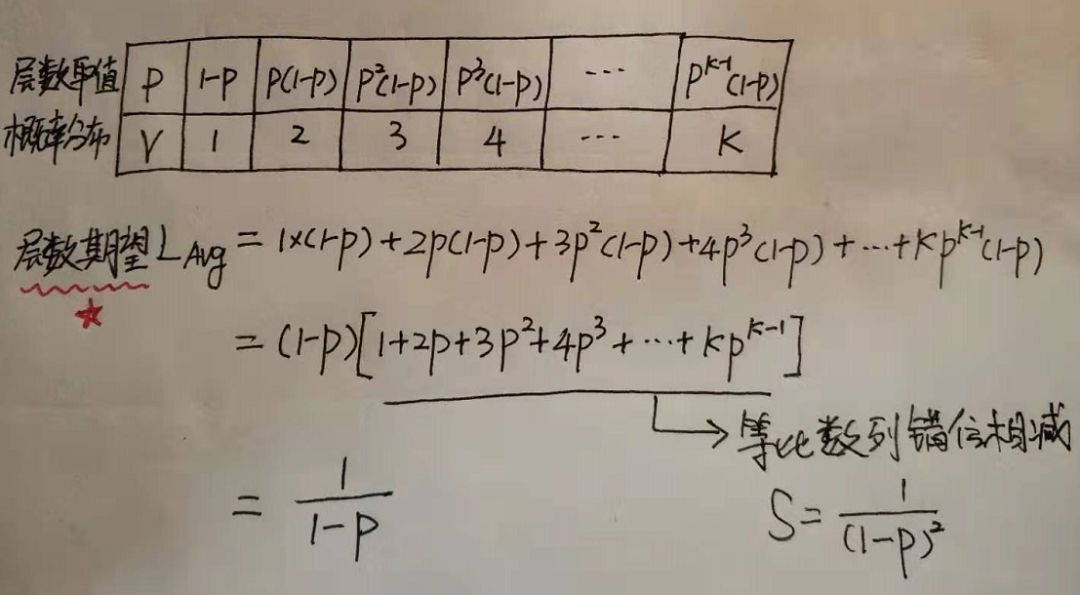 层数取值 P 1-P P(1-P) P²(1-P) P³(1-P) ... P^{K-1}(1-P)
概率分布 V 1 2 3 4 ... K
层数期望 L_{Avg} = 1×(1-P)+2P(1-P)+3P²(1-P)+4P³(1-P)+...+KP^{K-1}(1-P)
= (1-P)[1+2P+3P²+4P³+...+KP^{K-1}]
→ 等比数列错位相减
= \frac{1}{1-P} S= \frac{1}{(1-P)²}